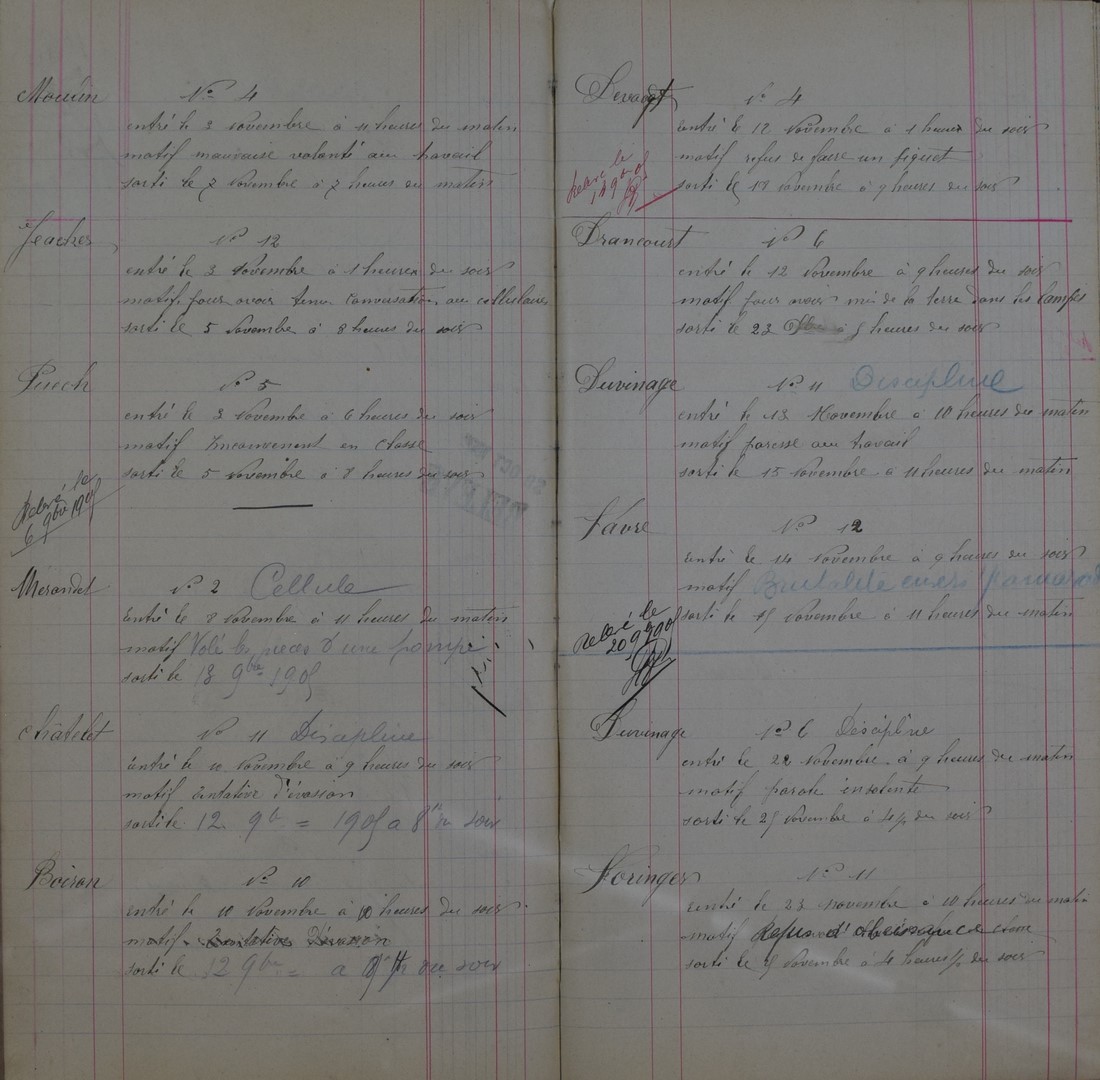 Mouim N° 4
entré le 3 Novembre à 11 heures du matin
motif mauvaise volonté au travail
sorti le 7 Novembre à 7 heures du matin
N° 12
entré le 3 Novembre à 1 heures du soir
motif pour avoir tenu conversation au cellulaire
sorti le 5 Novembre à 8 heures du soir
Puech N° 5
entré le 3 Novembre à 6 heures du soir
motif Inconvenent en classe
sorti le 5 Novembre à 8 heures du soir
Relevé le
6 9bre 1905
Mérandet N° 2 Cellule
Entré le 8 Novembre à 11 heures du matin
motif Volé les pieces d'une pompe
sorti le 18 9bre 1905
Châtelet N° 11 Discipline
entré le 10 Novembre à 9 heures du soir
motif tentative d'évasion
sorti le 12 9bre = 1905 a 8h du soir
Boiron N° 10
entré le 10 Novembre à 10 heures du soir
motif Tentative d'évasion
sorti le 12 9bre = a 8h du soir
N° 4
entré le 12 Novembre à 1 heures du soir
motif refus de faire un piquet
sorti le 18 Novembre à 9 heures du soir
Relevé le
18 9bre 05
Drancourt N° 6
entré le 12 Novembre à 9 heures du soir
motif pour avoir mis de la terre dans les lampes
sorti le 23 à 5 heures du soir
Duvinage N° 11 Discipline
entré le 13 Novembre à 10 heures du matin
motif paresse au travail
sorti le 15 Novembre à 11 heures du matin
Favre N° 12
entré le 14 Novembre à 9 heures du soir
motif Brutalité envers Kamarade
sorti le 15 Novembre à 11 heures du matin
Relevé le
20 9bre 05
Duvinage N° 6 Discipline
entré le 22 Novembre à 9 heures du matin
motif parole insolente
sorti le 25 Novembre à 4h du soir
Foringer N° 11
entré le 23 Novembre à 10 heures du matin
motif Refus d'obeissance
sorti le 25 Novembre à 4 heures du soir